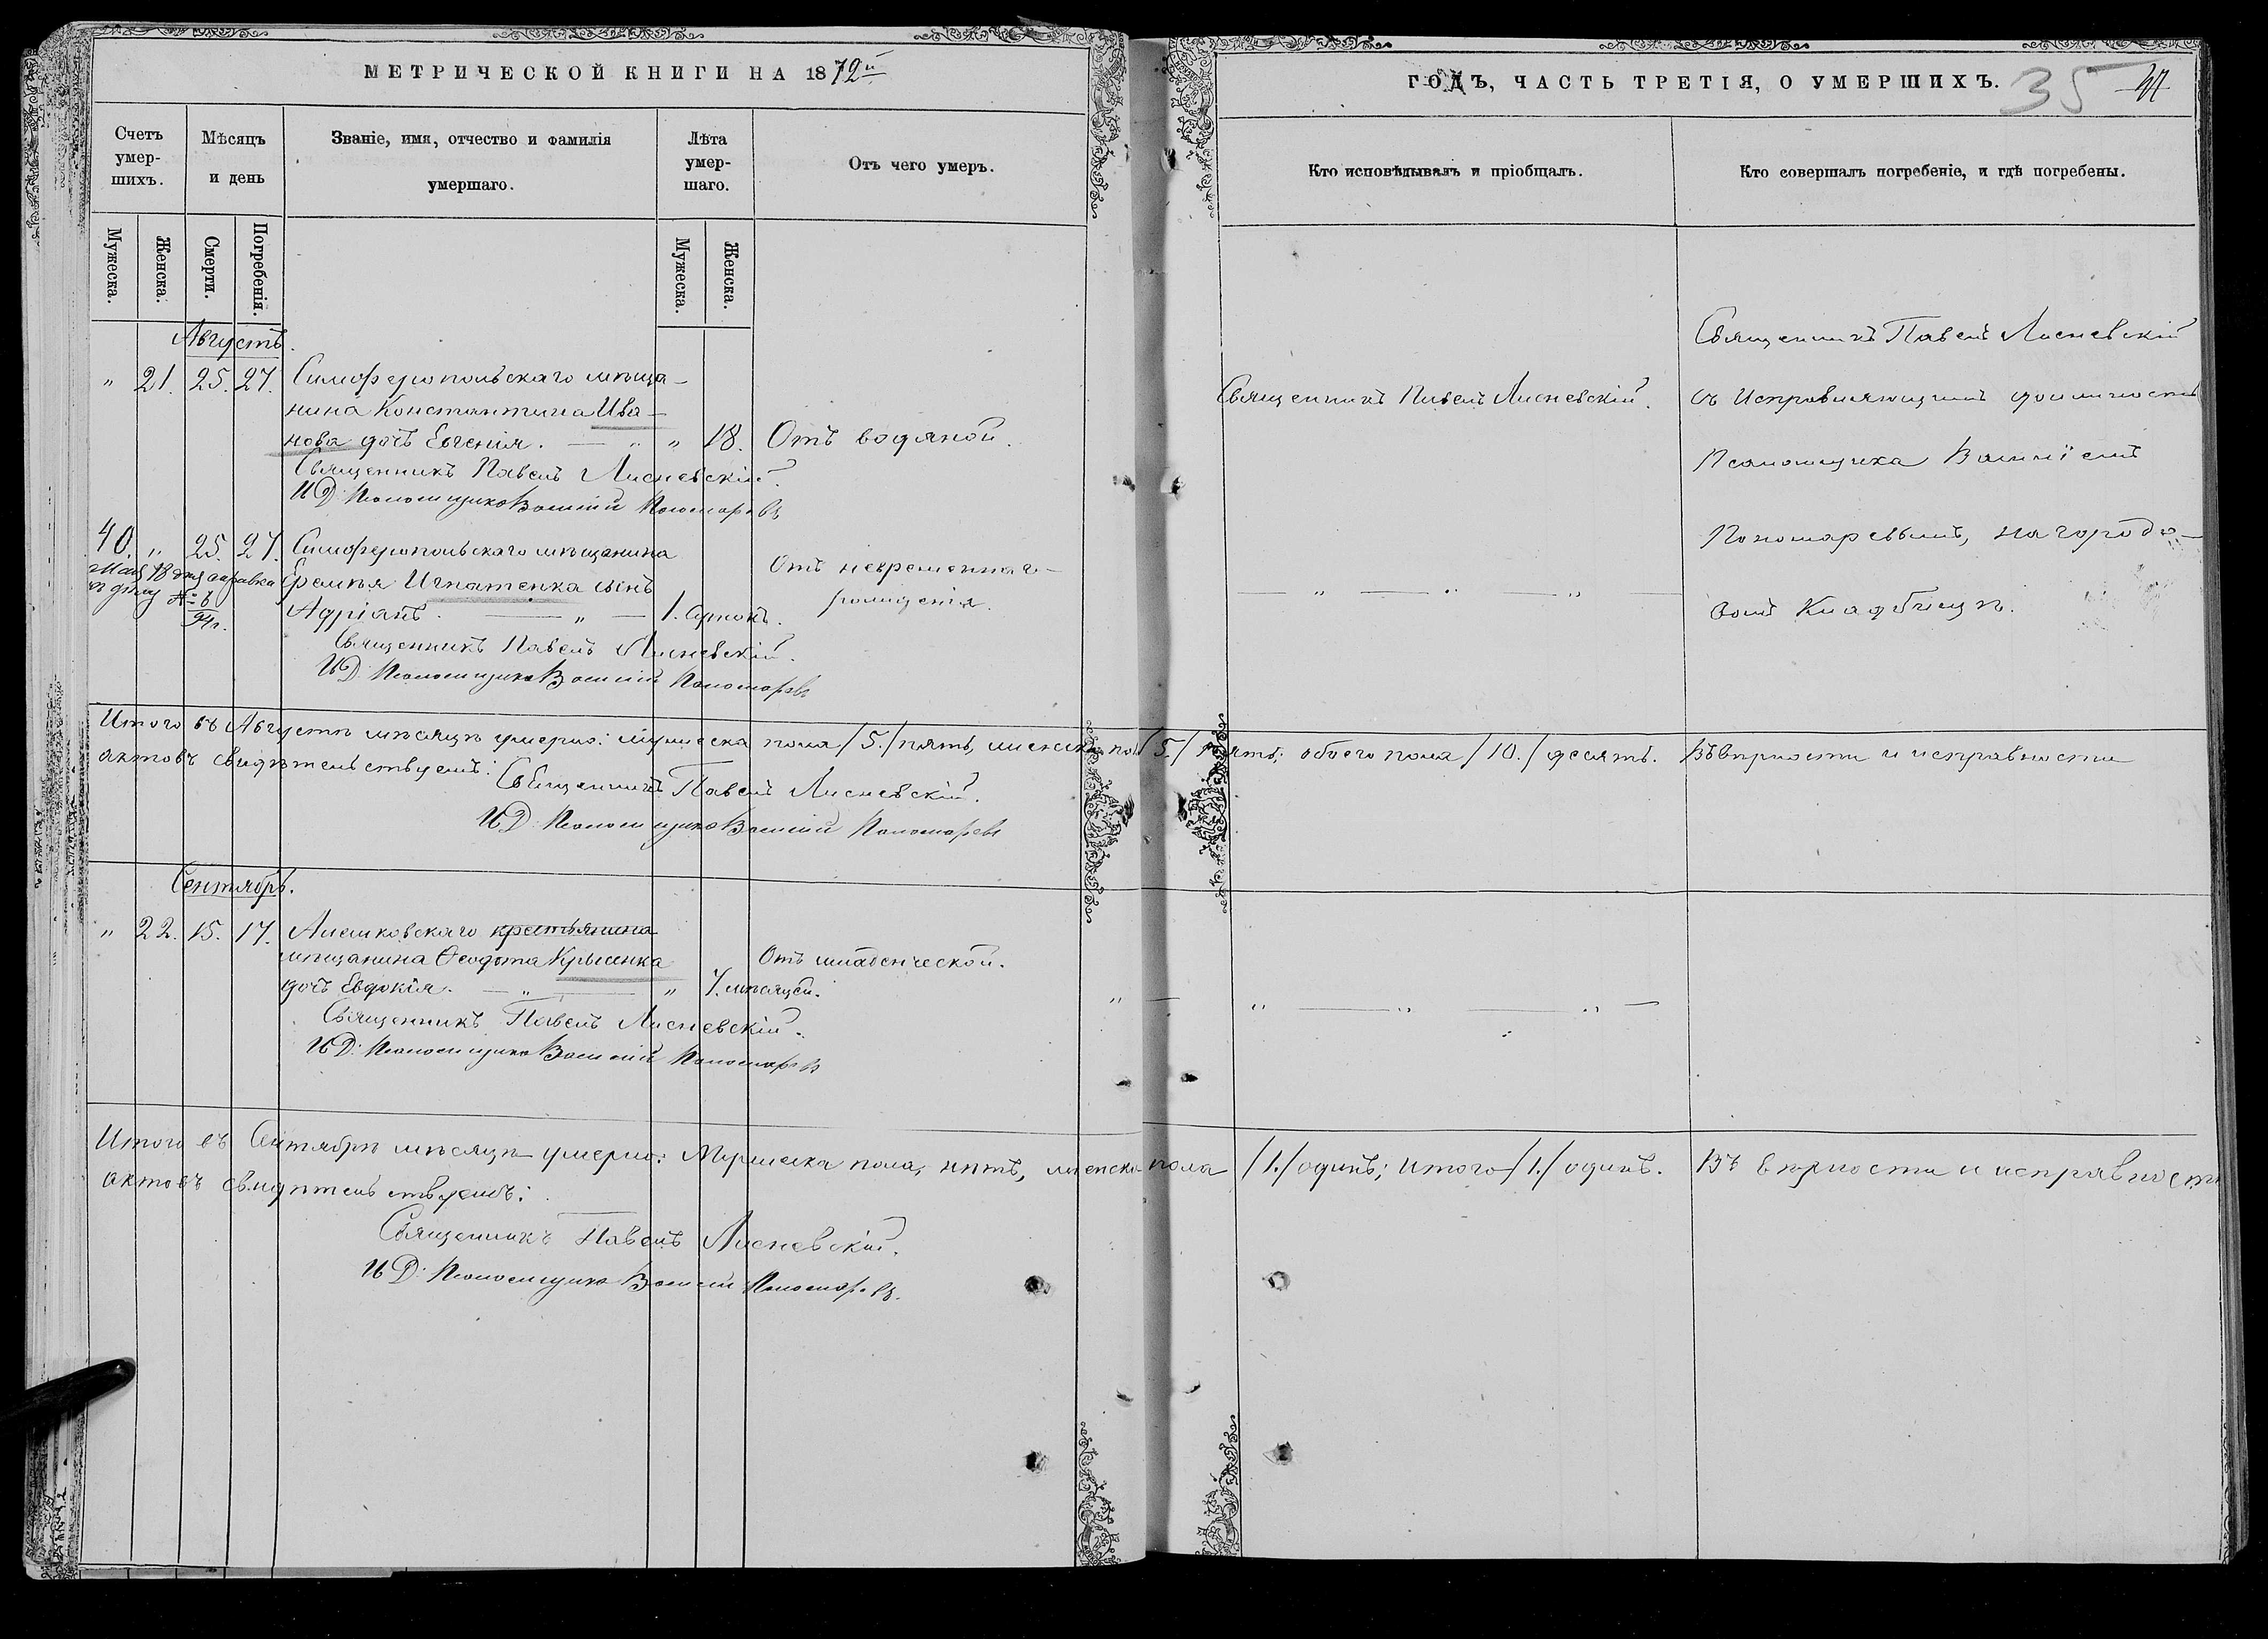 МЕТРИЧЕСКОЙ КНИГИ НА 1872й
ГОДЪ, ЧАСТЬ ТРЕТІЯ, О УМЕРШИХЪ.
35
Счетъ умер-шихъ.
Мѣсяцъ и день
Званіе, имя, отчество и фамилія умершаго.
Лѣта умер-шаго.
Отъ чего умеръ.
Кто исповѣдывалъ и пріобщалъ.
Кто совершалъ погребеніе, и гдѣ погребены.
Мужеска.
Женска.
Смерти.
Погребенія.
Мужеска.
Женска.
Августъ.
" 21. 25. 27. Симферопольскаго мѣща-
нина Константина Ива-
нова дочь Евгенія. — " — " 18. Отъ водяной.
Священникъ Павелъ Лисневскій.
И.Д. Псаломщика Василій Пономаревъ
Священникъ Павелъ Лисневскій.
Священникъ Павелъ Лисневскій
съ Исправляющимъ должность
Псаломщика Василіемъ
Пономаревымъ, на городо-
вомъ Кладбищѣ.
40. " 25. 27. Симферопольскаго мѣщанина
Еремѣя Игнатенка сынъ
Адріанъ. — " — 1. сутокъ.
Отъ невременнаг-
рождения.
Мая 18 дня справка
къ дѣлу №
94г.
Священникъ Павелъ Лисневскій.
И.Д. Псаломщика Василій Пономаревъ
— " — " — " —
Итого въ Августѣ мѣсяцѣ умерло: мужеска пола /5./ пять, женска пола /5./ пять; обоего пола /10./ десять. Въ вѣрности и исправности
актовъ свидѣтельствуемъ:
Священникъ Павелъ Лисневскій.
И.Д. Псаломщика Василій Пономаревъ
Сентябрь.
" 22. 15. 17. Алешковскаго крестьянина
мѣщанина Ѳеодота Крысенка
дочь Евдокія. — " — " 7. мѣсяцей.
Отъ младенческой.
Священникъ Павелъ Лисневскій.
И.Д. Псаломщика Василій Пономаревъ
" — " — " — " —
Итого въ Сентябрѣ мѣсяцѣ умерло: Мужеска пола, нѣтъ, женска пола /1./ одинъ; итого /1./ одинъ. Въ вѣрности и исправности
актовъ свидѣтельствуемъ:
Священникъ Павелъ Лисневскій.
И.Д. Псаломщика Василій Пономаревъ.